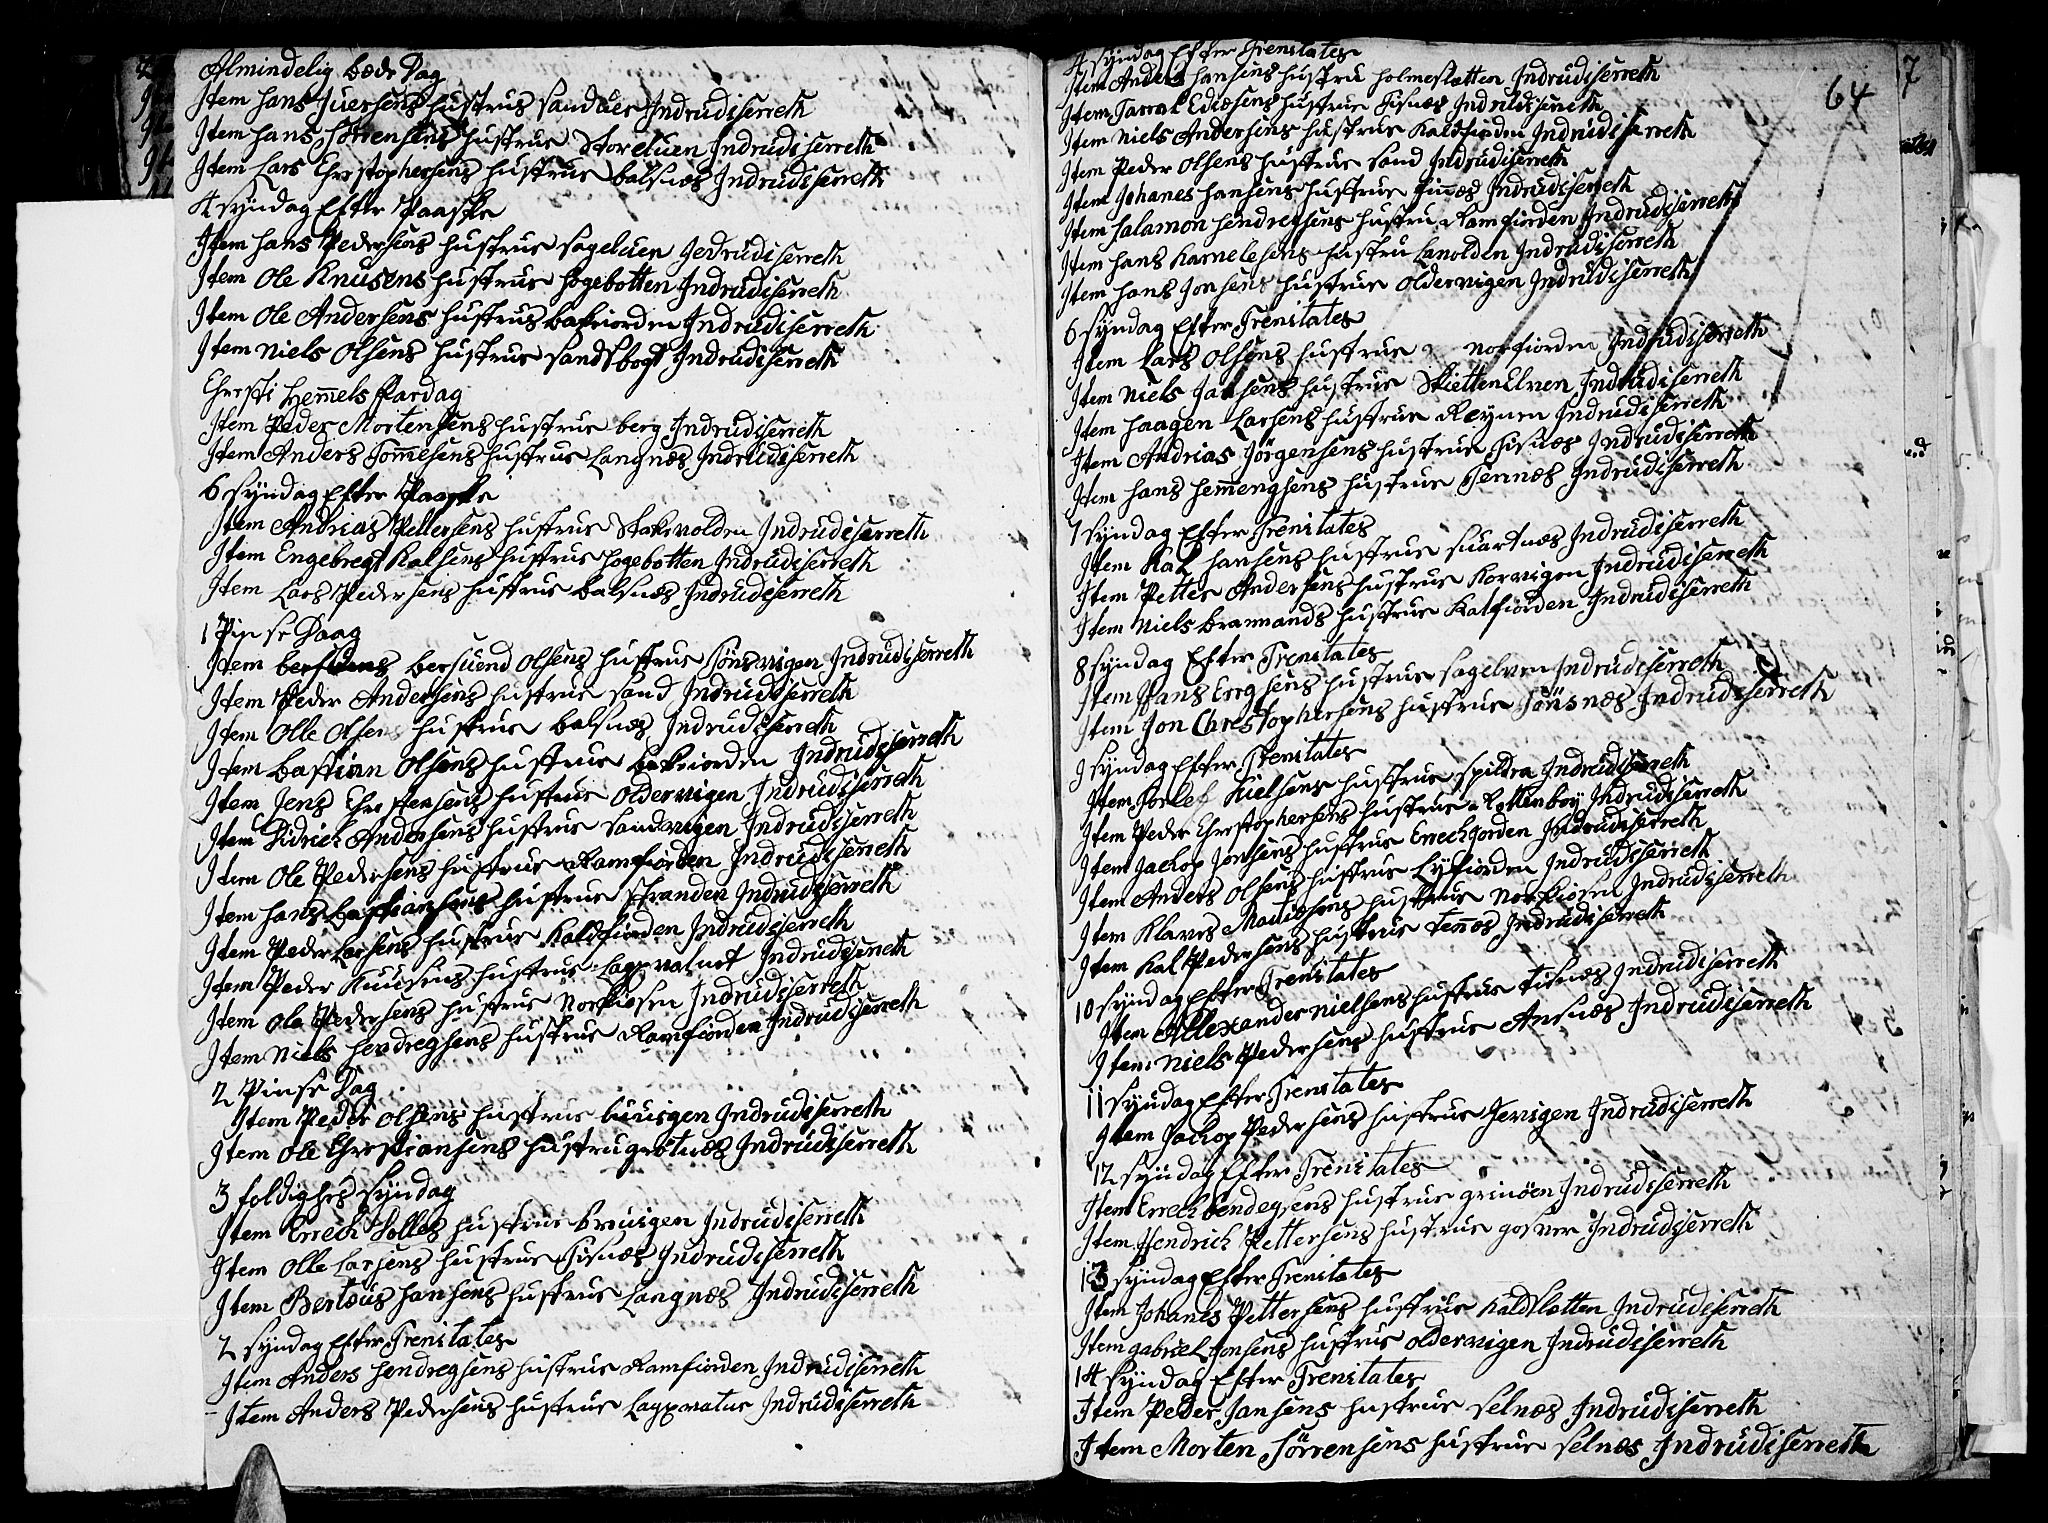 Almindelig bede Dag
Item hans Juersens hustrue sanduer Indrudiserreth
Item hans Sörrensens hustrue Storeluen Indrudiserreth
Item Lars Chrestophersens hustrue balsnæs Indrudiserreth
4 syndag Efter Paaske
Item hans Pedersens hustrue sageluen Jedrudiserreth
Item Ole Knusens hustrue hogebotten Indrudiserreth
Item Ole Andersens hustrue Balsfiorden Indrudiserreth
Item Niels Olsens hustrue sandsbogt Indrudiserreth
Chresti Hemmels ffardag
Item Peder Mortensens hustrue berg Indrudiserreth
Item Anders Tommesens hustrue Langnæs Indrudiserreth
6 syndag Efter Paaske
Item Andrias Pettersens hustrue Stakevolden Indrudiserreth
Item Engebregt Kalsens hustrue hogebotten Indrudiserreth
Item Lars Pedersens hustrue balsnæs Indrudiserreth
1 Pinse Daag
Item bersuend Olsens hustrue vigen Indrudiserreth
Item Peder Andersens hustrue sand Indrudiserreth
Item Olle Olsens hustrue balsnæs Indrudiserreth
Item bastian Olsens hustrue Indrudiserreth
Item Jens Chrestensens hustrue oldervigen Indrudiserreth
Item Didrich Andersens hustrue sandvigen Indrudiserreth
Item Ole Pedersens hustrue Ramfiorden Indrudiserreth
Item hans bastiansens hustrue stranden Indrudiserreth
Item Peder Larsens hustrue Kaldfiorden Indrudiserreth
Item Peder Knusens hustrue Indrudiserreth
Item Ole Pedersens hustrue Norkiosen Indrudiserreth
Item Niels hendregsens hustrue Ramfiorden Indrudiserreth
2 Pinse Dag
Item Peder Olsens hustrue Indrudiserreth
Item Ole Chrestiansens hustru grötnes Indrudiserreth
3 foldigheds syndag
Item Errech hustrue Indrudiserreth
Item Olle Larsens hustrue Tisnæs Indrudiserreth
Item Berteus hansens hustrue Langnæs Indrudiserreth
2 syndag Efter Trenitates
Item Anders hendregsens hustrue Ramfiorden Indrudiserreth
Item Anders Pedersens hustrue Indrudiserreth
64
7
4 syndag Efter Trenitates
Item Anders hansens hustru holmesletten Indrudiserreth
Item hustrue Tisnæs Indrudiserreth
Item Niels Andersens hustrue Kaldfiorden Indrudiserreth
Item Peder Olsens hustrue sand Indrudiserreth
Item Johanes hansens hustrue Indrudiserreth
Item salamon hendregsens hustru Ramfiorden Indrudiserreth
Item hans Karnelesens hustru Indrudiserreth
Item hans Jonsens hustrue oldervigen Indrudiserreth
6 syndag Efter Trenitates
Item Lars Olsens hustrue norfiorden Indrudiserreth
Item Niels Jansens hustrue SkiettenElven Indrudiserreth
Item haagen Larsens hustrue Reynen Indrudiserreth
Item Andrias Jörgensens hustrue Tisnæs Indrudiserreth
Item hans hemmengsens hustrue Tennæs Indrudiserreth
7 syndag Efter Trenitates
Item Kal hansens hustrue suartnæs Indrudiserreth
Item Petter Andersens hustrue Korvigen Indrudiserreth
Item Niels bramands hustrue Kalfiorden Indrudiserreth
8 syndag Efter Trenitates
Item Hans Eregsens hustrue sagelven Indrudiserreth
Item Jon Chrestophersens hustrue Tönsnæs Indrudiserreth
9 syndag Efter Trenitates
Item Torlef Nielsens hustrue spildra Indrudiserreth
Item Peder Chrestophersens hustrue Rottenboy Indrudiserreth
Item Jachop Jonsens hustrue Errechgorden Indrudiserreth
Item Anders Olsens hustrue Lyfiorden Indrudiserreth
Item Klaves hustrue Norkiosen Indrudiserreth
Item Kal Pedersens hustrue tennes Indrudiserreth
10 syndag Efter Trenitates
Item Allexander nielsens hustrue tisnæs Indrudiserreth
Item Niels Pedersens hustrue Ansnæs Indrudiserreth
11 syndag Efter Trenitates
Item Jachop Pedersens hustrue Jevigen Indrudiserreth
12 syndag Efter Trenitates
Item Errech bendegsens hustrue grinöen Indrudiserreth
Item Hendrich Pettersens hustrue gosver Indrudiserreth
13 syndag Efter Trenitates
Item Johanes Pettersens hustrue Kaldsletten Indrudiserreth
Item gabriel Jonsens hustrue oldervigen Indrudiserreth
14 syndag Efter Trenitates
Item Peder Jansens hustrue selnæs Indrudiserreth
Item Morten Sörrensens hustrue selnæs Indrudiserreth